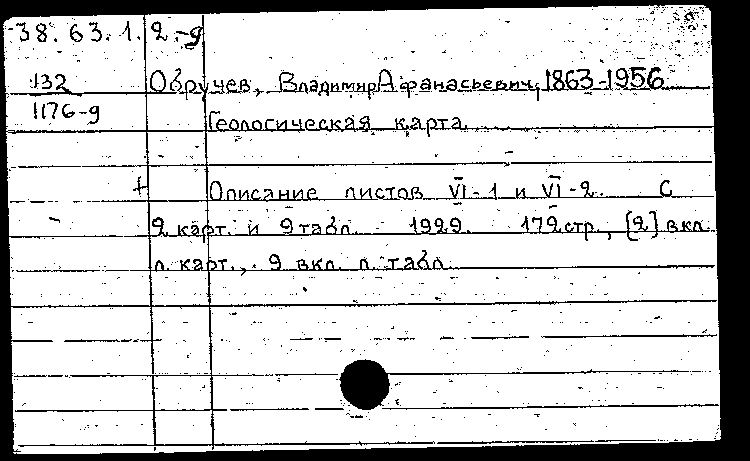 38.63.1.2-g
132
1176-g
Обручев, Владимир Афанасьевич, 1863-1956
Геологическая карта
+
Описание листов VI-1 и VI-2. С
2 карт. и 9 табл. 1929. 172 стр., [2] вкл.
л. карт., 9 вкл. л. табл.